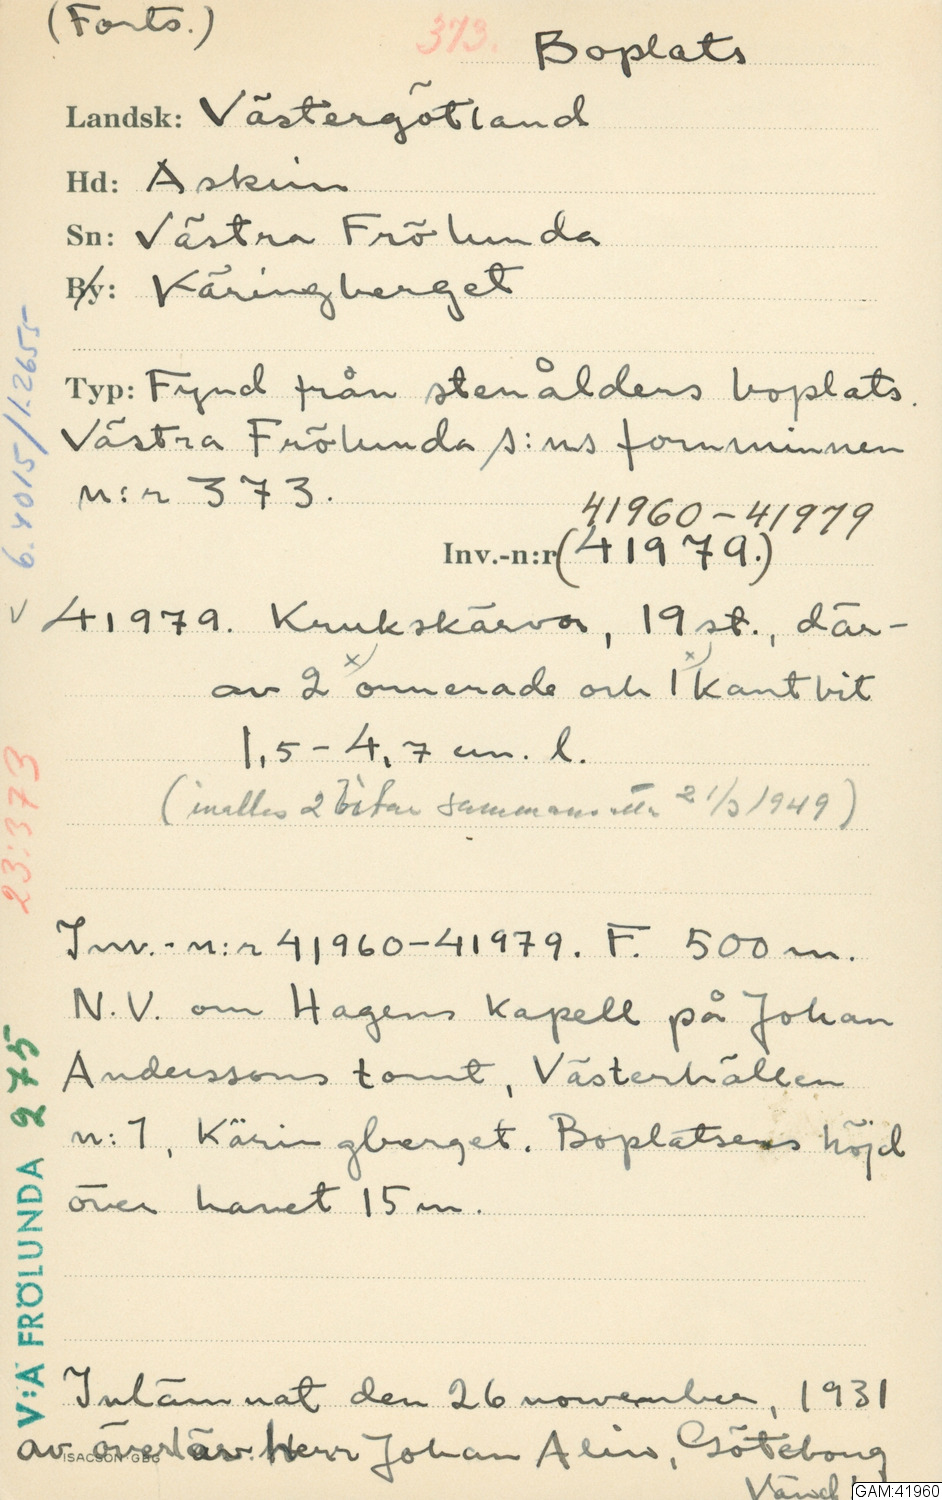 (Forts.)
373.
Boplats
Landsk: Västergötland
Hd: Askim
Sn: Västra Frölunda
By: Käringberget
Typ: Fynd från stenålders boplats.
Västra Frölunda s:ns fornminnen
n:r 373.
41960-41979
Inv.-n:r (41979.)
v 41979. Krukskärvor, 19 st., där-
av 2 x) ornerade och 1 x) kantbit
1,5-4,7 cm. l.
(inalles 2 bitar sammansatta 2 1/3 1949)
Inv.-n:r 41960-41979. F. 500 m.
N.V. om Hagens kapell på Johan
Anderssons tomt, Västerhällen
n:1, Käringberget. Boplatsens höjd
över havet 15 m.
Inlämnat den 26 november, 1931
av överlär. Herr Johan Alin, Göteborg
ISACSON GBG
Vänd!
GAM:41960
6.4015/1.2655
23:373
V:A FRÖLUNDA 275